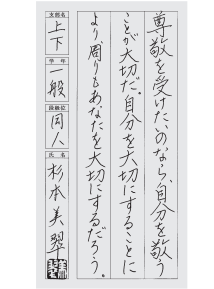 尊敬を受けたいのなら、自分を敬う
ことが大切だ。自分を大切にすることに
より、周りもあなたを大切にするだろう。
支部名
上下
学年
一般
段級位
同人
氏名
杉本美翠